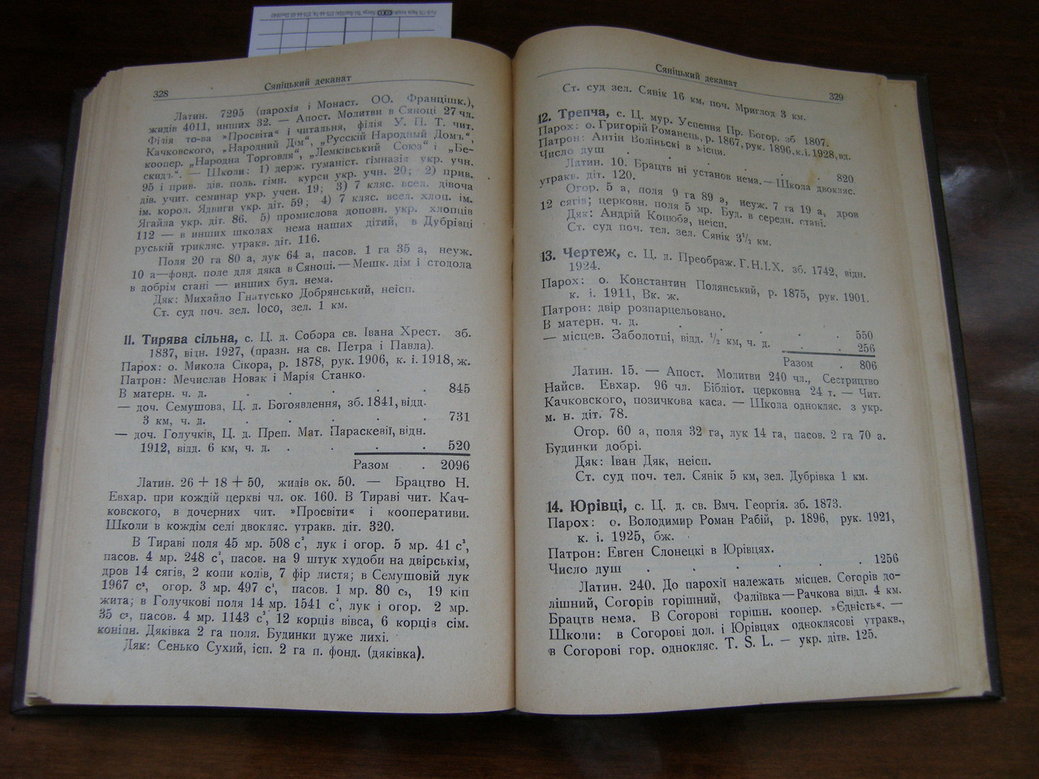 328
Сяніцький деканат
Латин. 7295 (парохія і Монаст. ОО. Францішк.),
жидів 4011, инших 32. — Апост. Молитви в Сяноці 27 чл.
Філія то-ва »Просвіта« і читальня, філія У. П. Т. чит.
Качковського, „Народний Дім", „Русскій Народный Домъ".
коопер. „Народна Торговля", „Лемківський Союз" і „Бе-
скид". — Школи: 1) держ. гуманіст. гімназія укр. учн.
95 і прив. дів. поль. гімн. курси укр. учн. 20; 2) прив.
дів. учит. семинар укр. учен. 19; 3) 7 кляс. всел. дівоча
ім. корол. Ядвиги укр. діт. 59; 4) 7 кляс. всел. хлоп. ім.
Ягайла укр. діт. 86. 5) промислова доповн. укр. хлопців
112 — в инших школах нема наших дітий, в Дубрівці
руській трикляс. утракв. діт. 116.
Поля 20 га 80 а, лук 64 а, пасов. 1 га 35 а, неуж.
10 а—фонд. поле для дяка в Сяноці. — Мешк. дім і стодола
в добрім стані — инших буд. нема.
Дяк: Михайло Гнатусько Добрянський, неісп.
Ст. суд поч. зел. loco, зел. 1 км.
11. Тирява сільна, с. Ц. д. Собора св. Івана Хрест. зб.
1837, відн. 1927, (празн. на св. Петра і Павла).
Парох: о. Микола Сікора, р. 1878, рук. 1906, к. і. 1918, ж.
Патрон: Мечислав Новак і Марія Станко.
В матерн. ч. д. . . . . . 845
— доч. Семушова, Ц. д. Богоявлення, зб. 1841, відд.
3 км, ч. д. . . . . . 731
— доч. Голучків, Ц. д. Преп. Мат. Параскевії, відн.
1912, відд. 6 км, ч. д. . . . . 520
Разом . 2096
Латин. 26 + 18 + 50, жидів ок. 50. — Брацтво Н.
Евхар. при кождій церкві чл. ок. 160. В Тираві чит. Кач-
ковского, в дочерних чит. »Просвіти« і кооперативи.
Школи в кождім селі двокляс. утракв. діт. 320.
В Тираві поля 45 мр. 508 с², лук і огор. 5 мр. 41 с²,
пасов. 4 мр. 248 с², пасов. на 9 штук худоби на двірськім,
дров 14 сягів, 2 копи колів, 7 фір листя; в Семушовій лук
1967 с², огор. 3 мр. 497 с², пасов. 1 мр. 80 с₃, 19 кіп
жита; в Голучкові поля 14 мр. 1541 с², лук і огор. 2 мр.
35 с², пасов. 4 мр. 1143 с², 12 корців вівса, 6 корців сім.
коніпн. Дяківка 2 га поля. Будинки дуже лихі.
Дяк: Сенько Сухий, ісп. 2 га п. фонд. (дяківка).
Сяніцький деканат
329
Ст. суд зел. Сянік 16 км, поч. Мриглод 3 км.
12. Трепча, с. Ц. мур. Успення Пр. Богор. зб. 1807.
Парох: о. Григорій Романець, р. 1867, рук. 1896, к. і. 1928, вд.
Патрон: Антін Воліньскі в місци.
Число душ . . . . . 820
Латин. 10. Брацтв ні установ нема. — Школа двокляс.
утракв. діт. 120.
Огор. 5 а, поля 9 га 89 а, неуж. 7 га 19 а, дров
12 сягів; церковн. поля 5 мр. Буд. в середн. стані.
Дяк: Андрій Конюба, неісп.
Ст. суд поч. тел. зел. Сянік 3½ км.
13. Чертеж, с. Ц. д. Преображ. Г.Н.І.Х. зб. 1742, відн.
1924.
Парох: о. Константин Полянський, р. 1875, рук. 1901.
к. і. 1911, Вк. ж.
Патрон: двір розпарцельовано.
В матерн. ч. д. . . . . . 550
— місцев. Заболотці, відд. ½ км, ч. д. . . 256
Разом . 806
Латин. 15. — Апост. Молитви 240 чл., Сестрицтво
Найсв. Евхар. 96 чл. Бібліот. церковна 24 т. — Чит.
Качковського, позичкова каса. — Школа однокляс. з укр.
м. н. діт. 78.
Огор. 60 а, поля 32 га, лук 14 га, пасов. 2 га 70 а.
Будинки добрі.
Дяк: Іван Дяк, неісп.
Ст. суд поч. тел. Сянік 5 км, зел. Дубрівка 1 км.
14. Юрівці, с. Ц. д. св. Вмч. Георгія. зб. 1873.
Парох: о. Володимир Роман Рабій, р. 1896, рук. 1921,
к. і. 1925, бж.
Патрон: Евген Слонецкі в Юрівцях.
Число душ . . . . . . 1256
Латин. 240. До парохії належать місцев. Согорів до-
лішний, Согорів горішний, Фаліївка — Рачкова відд. 4 км.
Брацтв нема. В Согорові горішн. коопер. »Єдність«. —
Школи: в Согорові дол. і Юрівцях одноклясові утракв.,
в Согорові гор. однокляс. T. S. L. — укр. дітв. 125.